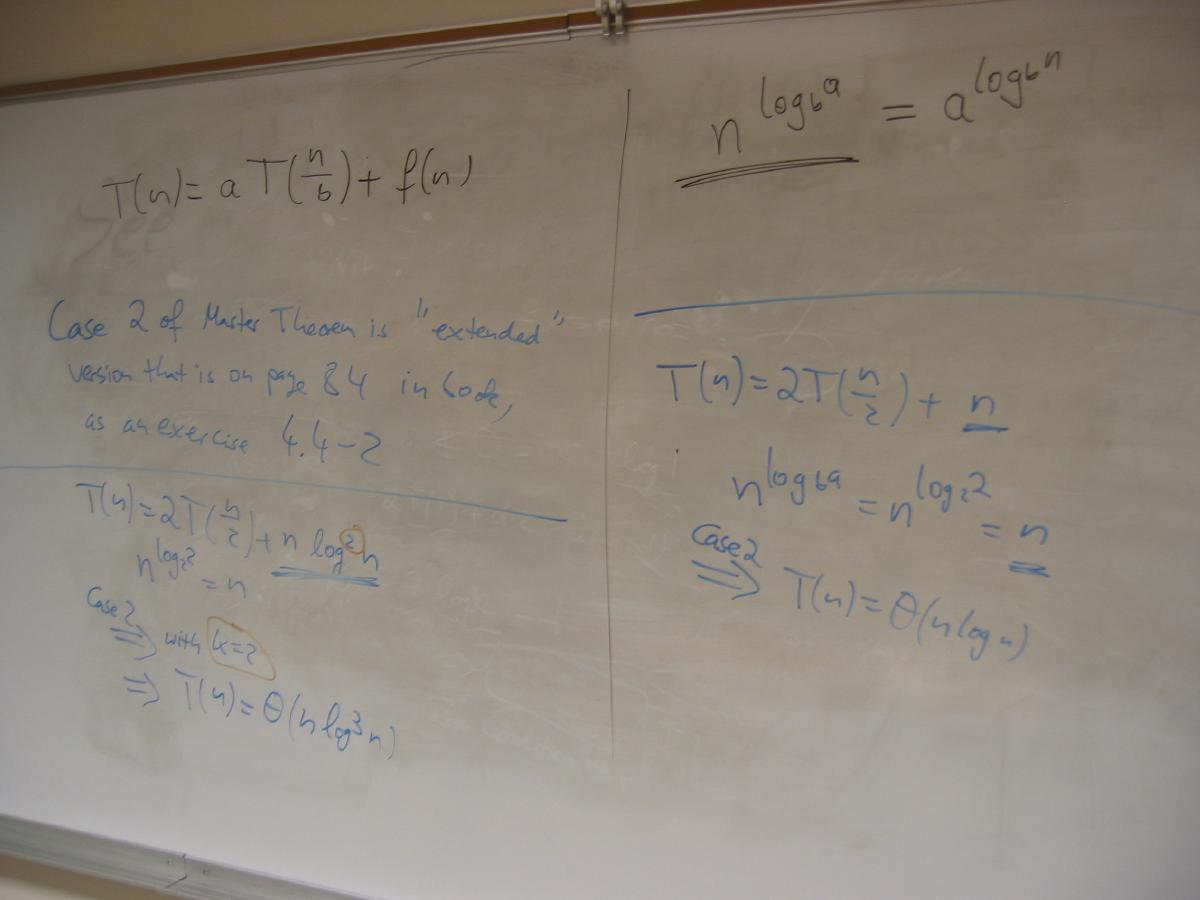 T(n) = a T(n/b) + f(n)
See
Case 2 of Master Theorem is "extended"
version that is on page 84 in book,
as an exercise 4.4-2
T(n) = 2T(n/2) + n log² n
n^{log₂2} = n
Case 2
⇒ with k=2
⇒ T(n) = Θ(n log³ n)
n^{log_b a} = a^{log_b n}
T(n) = 2T(n/2) + n
n^{log_b a} = n^{log₂2} = n
Case 2
⇒ T(n) = Θ(n log n)